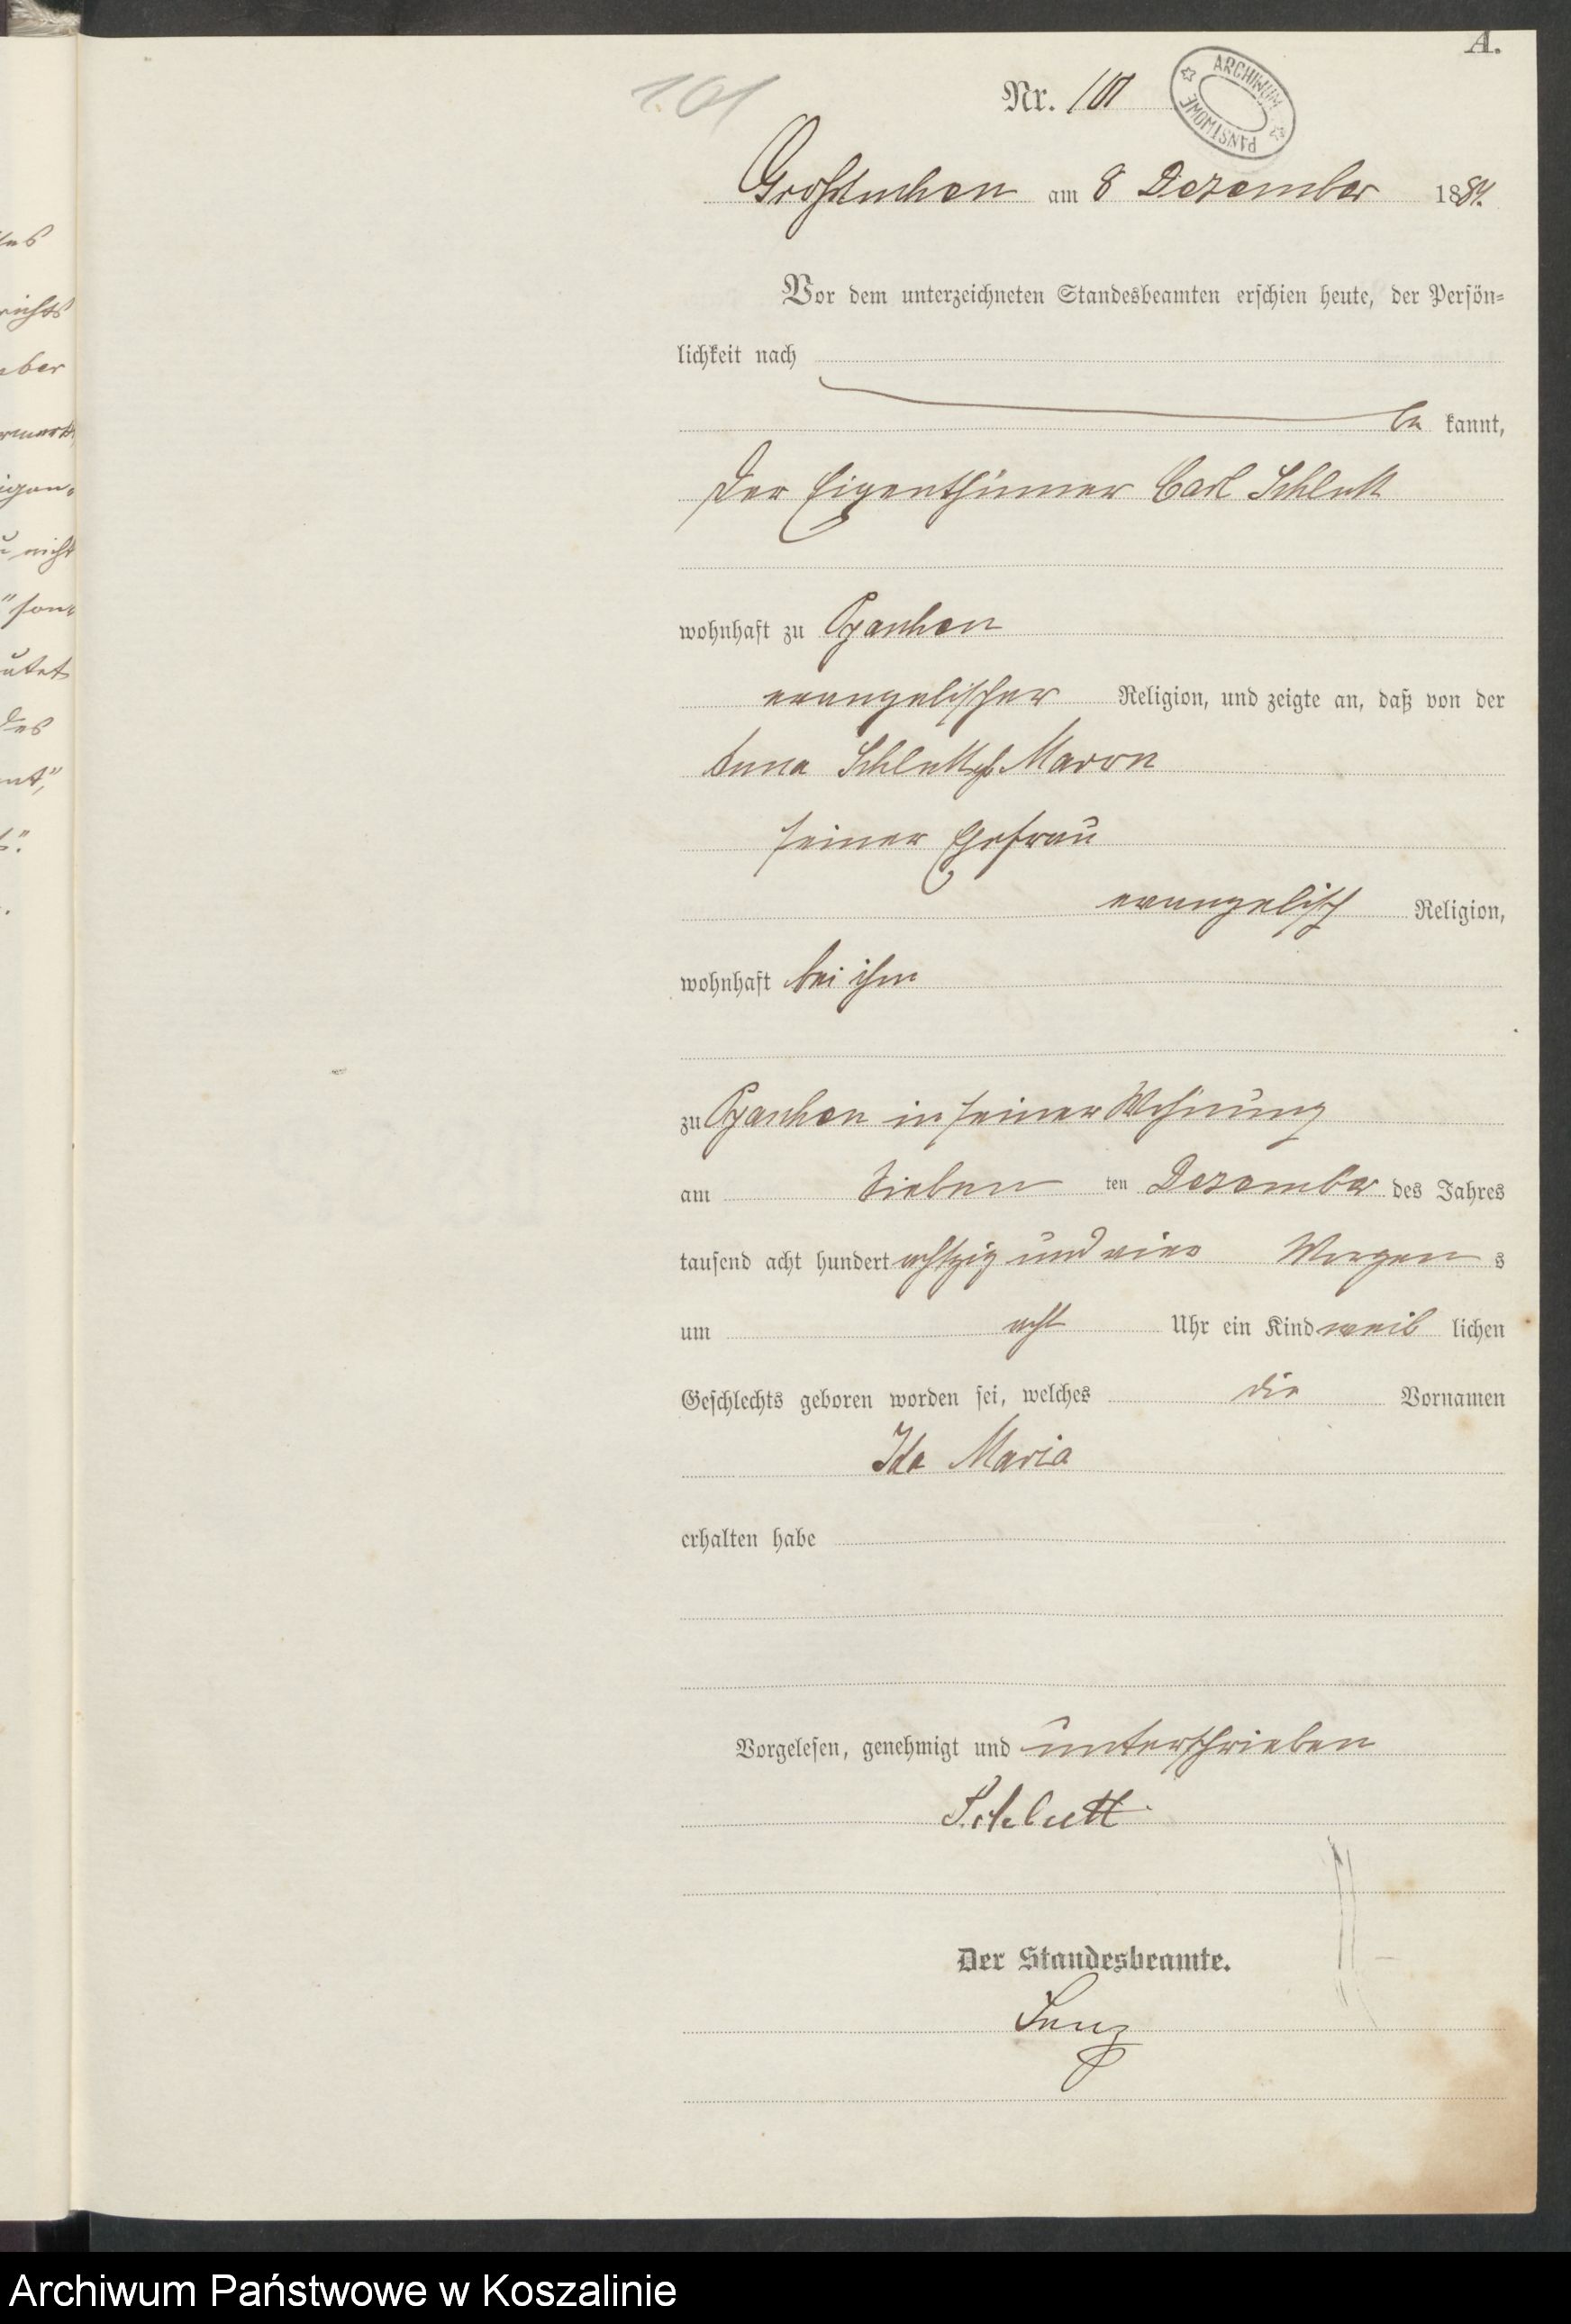 A.
101
Nr. 101
ARCHIWUM PAŃSTWOWE
Großtuchen am 8 Dezember 1884.
Vor dem unterzeichneten Standesbeamten erschien heute, der Persön-
lichkeit nach
be kannt,
der Eigenthümer Carl Schlutt
wohnhaft zu
evangelischer Religion, und zeigte an, daß von der
Anna Schlutt geb Maron
seiner Ehefrau
evangelisch Religion,
wohnhaft bei ihm
zu in seiner Wohnung
am Sieben ten Dezember des Jahres
tausend acht hundert achtzig und vier Morgen s
um acht Uhr ein Kind weib lichen
Geschlechts geboren worden sei, welches die Vornamen
Ida Maria
erhalten habe
Vorgelesen, genehmigt und unterschrieben
Schlutt
Der Standesbeamte.
Archiwum Państwowe w Koszalinie